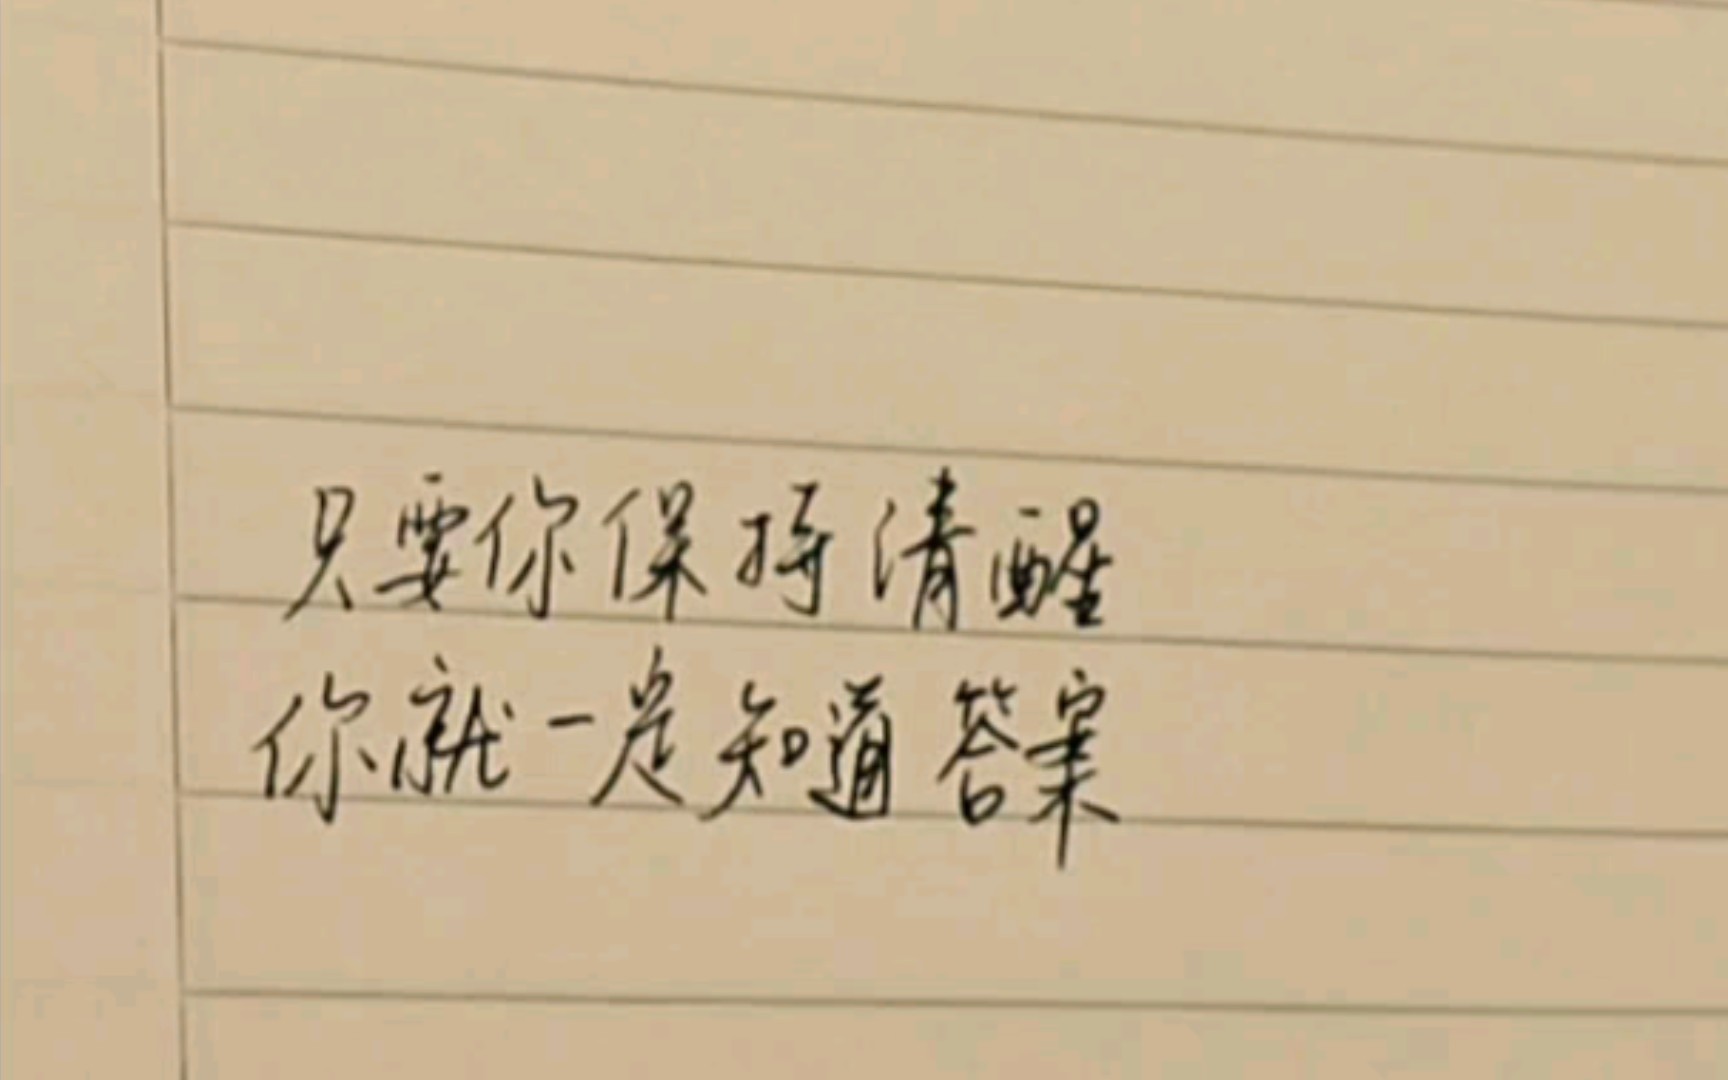 只要你保持清醒
你就一定知道答案